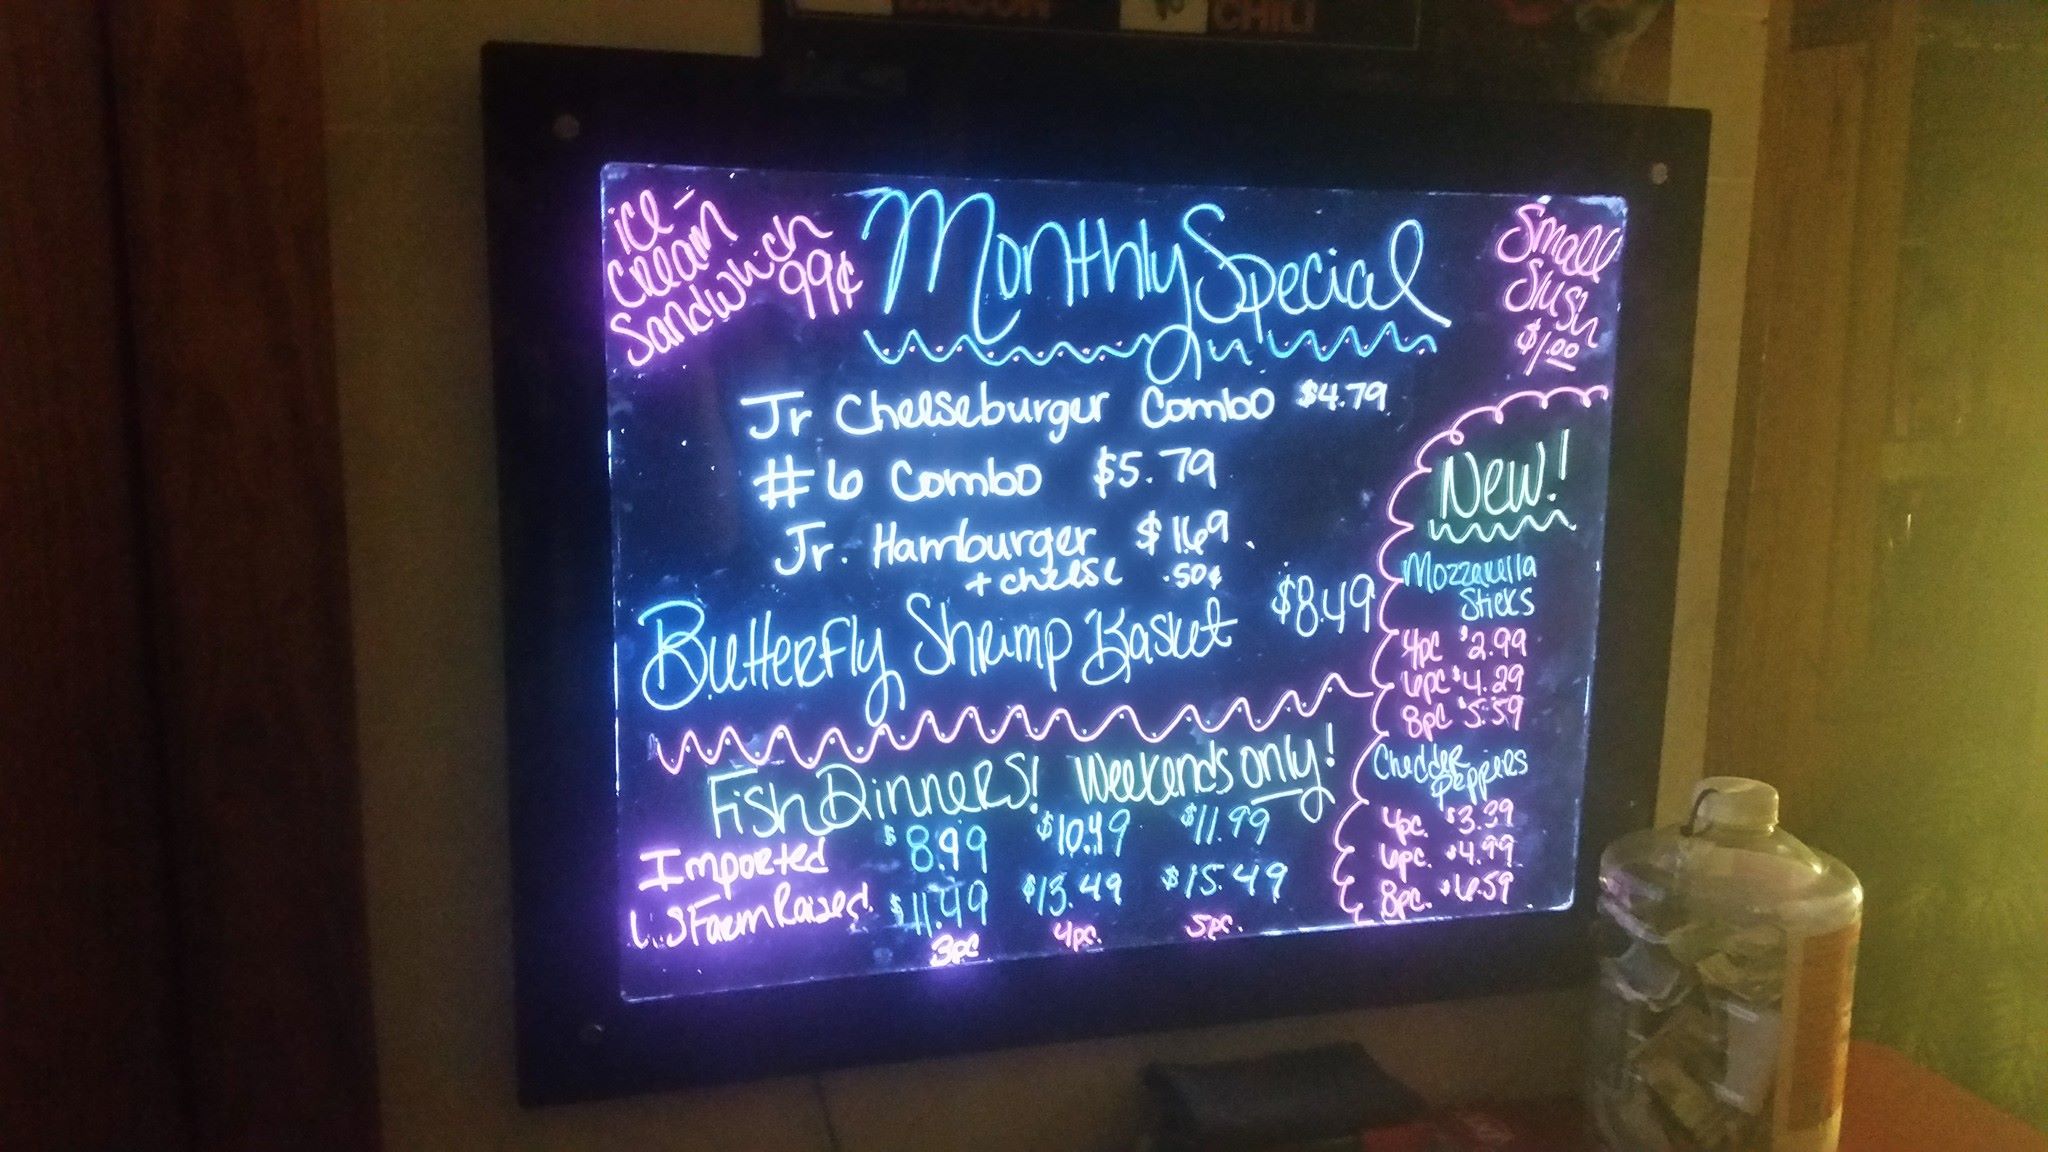 CHILI
ice-
Cream
Sandwhich
99¢
Monthly Special
Small
Slush
$1.00
Jr Cheeseburger Combo $4.79
#6 Combo $5.79
Jr. Hamburger $1.69
+ cheese .50¢
Butterfly Shrimp Basket $8.49
New!
Mozzarella
Sticks
4pc $2.99
6pc $4.29
8pc $5.59
Chedder
Peppers
4pc. $3.39
6pc. $4.99
8pc. $6.59
Fish Dinners! Weekends only!
Imported $8.99 $10.49 $11.99
U.S Farm Raised $11.49 $13.49 $15.49
3pc 4pc. 5pc.